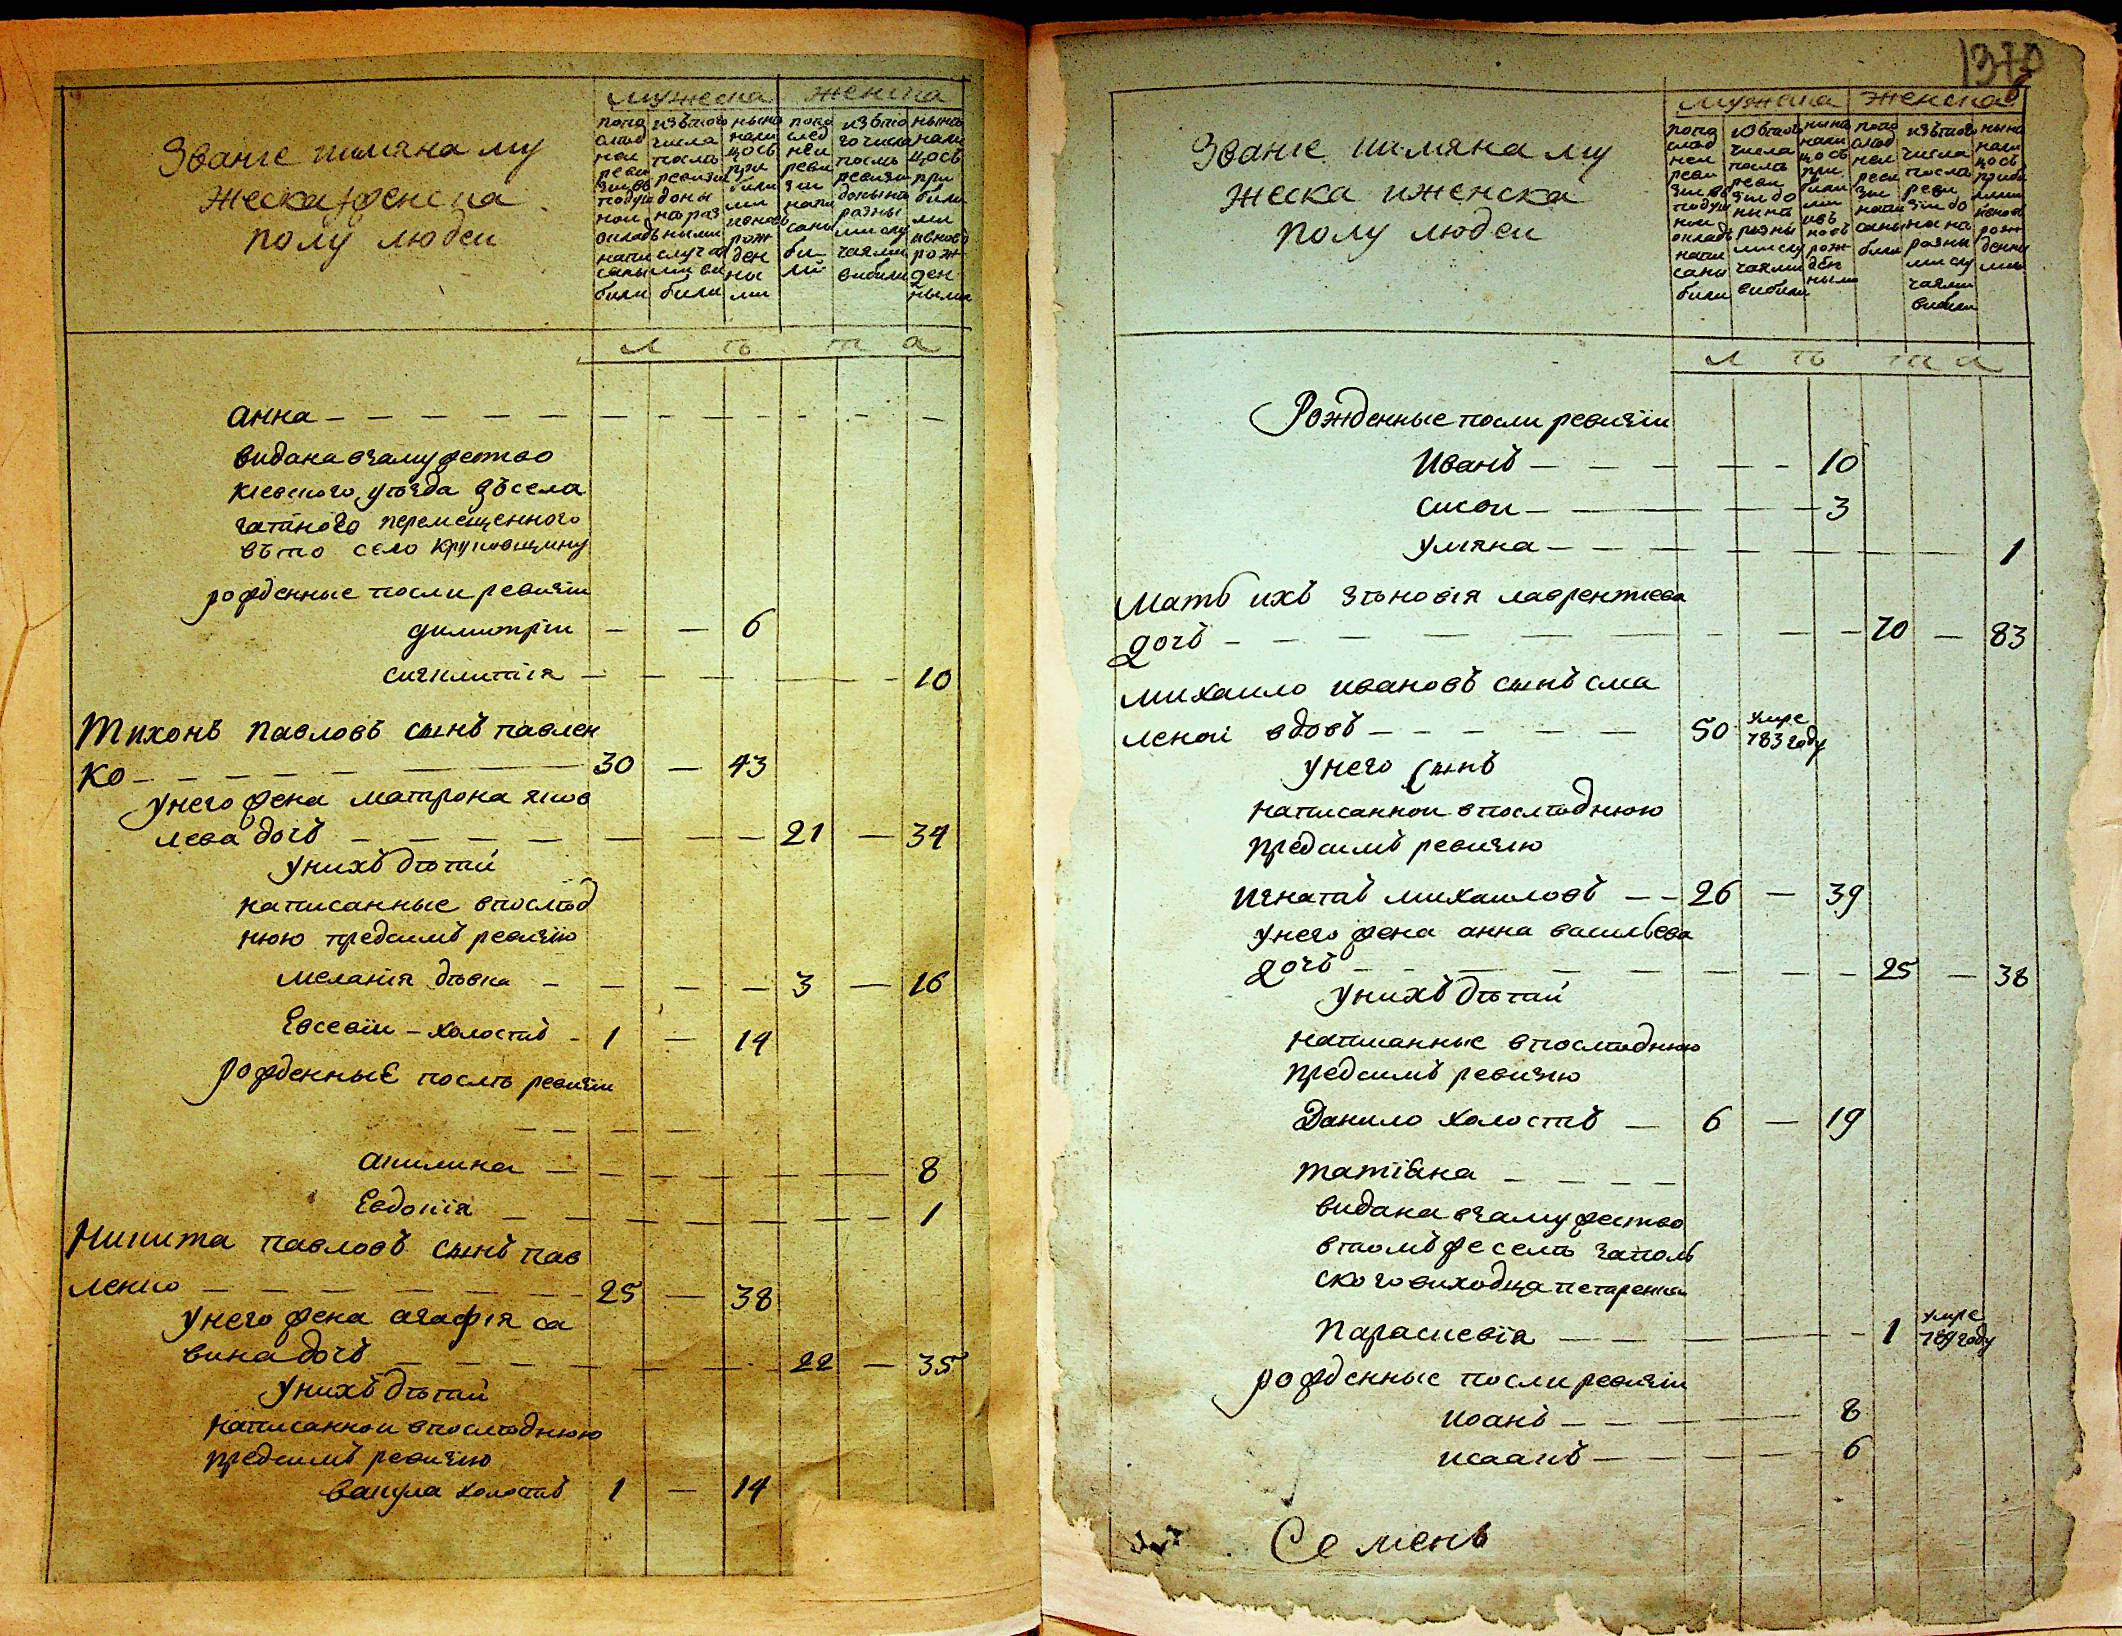 мужеска женска
Званіе иимяна му
жеска женска
полу людеи
попо
слѣд
неи
реви
зіи въ
подуш
нои
окладъ
напи
саны
били
изътого
числа
послѣ
ревизіи
доны
нѣ раз
ными
случая
ми вы
били
нынѣ
нали
цось
при
были
ми
ивновь
рож
ден
ны
ми
попо
след
неи
реви
зіи
напи
саны
би
ли
изъто
го числа
послѣ
ревизіи
донынѣ
разны
ми слу
чаями
вибили
нынѣ
нали
цось
при
были
ми
ивновь
рож
ден
ными
л ѣ т а
анна — — — — — — — — — — — —
видана взамужество
кіевского уѣзда зъсела
гатного перемещенного
въто село круковщину
рожденные посли ревизіи
димитріи — — 6
сигклитія — — — — — 10
Тихонъ Павловъ сынъ павлен
ко — — — — — — 30 — 43
унего жена матрона яков
лева дочъ — — — — — — — 21 — 34
унихъ дѣтей
написанные впослѣд
нюю предсимъ ревизію
меланія дѣвка — — — — 3 — 16
Евсевіи — холостъ — 1 — 14
рожденные послѣ ревизіи
— — — — —
акилина — — — — — — 8
Евдокія — — — — — — — 1
Никита павловъ сынъ пав
ленко — — — — — — — 25 — 38
унего жена агафія са
вина дочъ — — — — — — 22 — 35
унихъ дѣтей
написаннои впослѣднюю
предсимъ ревизію
вакула холостъ 1 — 14
1370
мужеска женска
Званіе иимяна му
жеска иженска
полу людеи
попо
слѣд
неи
реви
зіи въ
подуш
нои
окладъ
напи
саны
били
изътого
числа
послѣ
реви
зіи до
нынѣ
разны
ми слу
чаями
вибили
нынѣ
нали
цось
при
были
ми
ивъ
новь
рож
ден
ными
попо
слѣд
неи
реви
зіи
напи
саны
били
изътого
числа
послѣ
реви
зіи до
нынѣ
разны
ми слу
чаями
вибили
нынѣ
нали
цось
прибы
лими
ивновь
рож
денны
ми
л ѣ т а
Рожденные посли ревизіи
Иванъ — — — — — 10
сисои — — — — — 3
уляна — — — — — — — — 1
Мать ихъ зѣновія лаврентіева
дочъ — — — — — — — — — 70 — 83
михаило ивановъ сынъ сма
лекои вдовъ — — — — — 50 умре
783 году
унего сынъ
написаннои впослѣднюю
предсимъ ревизію
игнатъ михаиловъ — — 26 — 39
унего жена анна васильева
дочъ — — — — — — — — 25 — 38
унихъ дѣтей
написанные впослѣднюю
предсимъ ревизію
Данило холостъ — 6 — 19
татіяна — — — —
видана взамужество
втомъ же селѣ заполь
ского виходца петаренка
параскевія — — — — — 1 умре
789 году
рожденные посли ревизіи
иоанъ — — — — 8
исаакъ — — — — 6
Семенъ